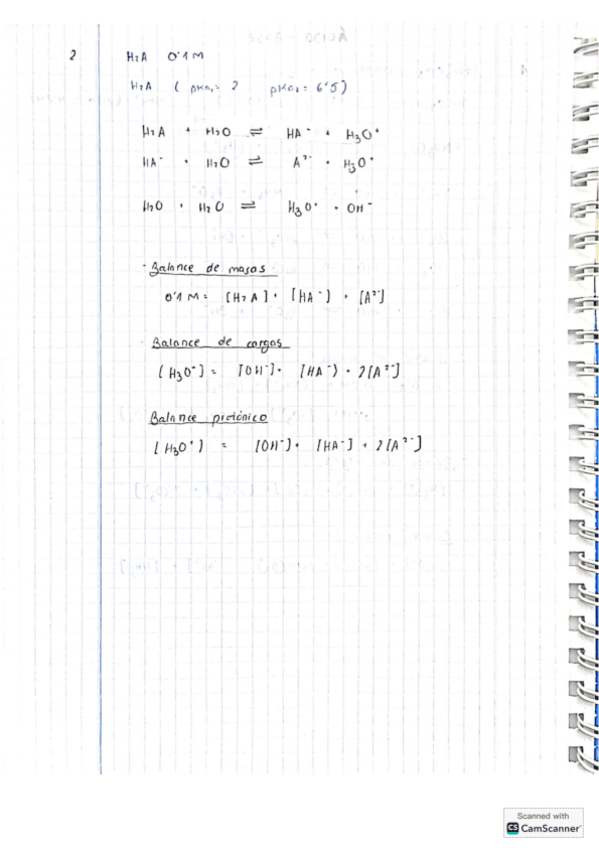 2 H2A 0'1 M
H2A ( pKa1 = 2 pKa2 = 6'5)
H2A + H2O ⇌ HA⁻ + H3O⁺
HA⁻ + H2O ⇌ A²⁻ + H3O⁺
H2O + H2O ⇌ H3O⁺ + OH⁻
· Balance de masas
0'1 M = [H2A] + [HA⁻] + [A²⁻]
· Balance de cargas
[H3O⁺] = [OH⁻] + [HA⁻] + 2[A²⁻]
Balance protónico
[H3O⁺] = [OH⁻] + [HA⁻] + 2[A²⁻]
Scanned with
CS CamScanner